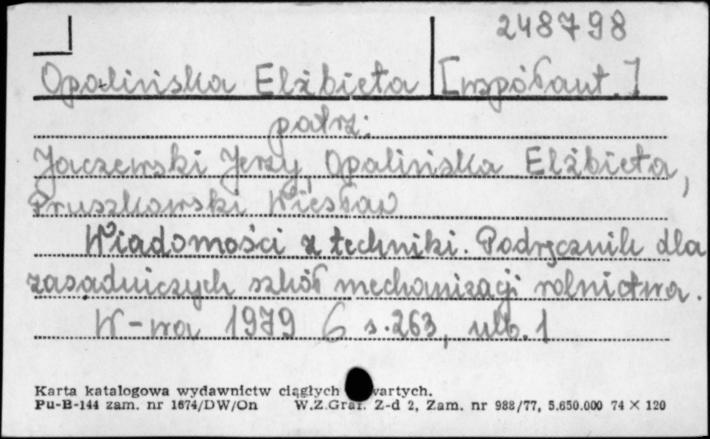 248798
Opalińska Elżbieta [współaut.]
patrz:
Jaczewski Jerzy, Opalińska Elżbieta,
Pruszkowski Wiesław
Wiadomości z techniki. Podręcznik dla
zasadniczych szkół mechanizacji rolnictwa.
W-wa 1979 s. 263, nlb. 1
Karta katalogowa wydawnictw ciągłych wartych.
Pu-B-144 zam. nr 1674/DW/On W.Z.Graf. Z-d 2, Zam. nr 988/77, 5.650.000 74 × 120